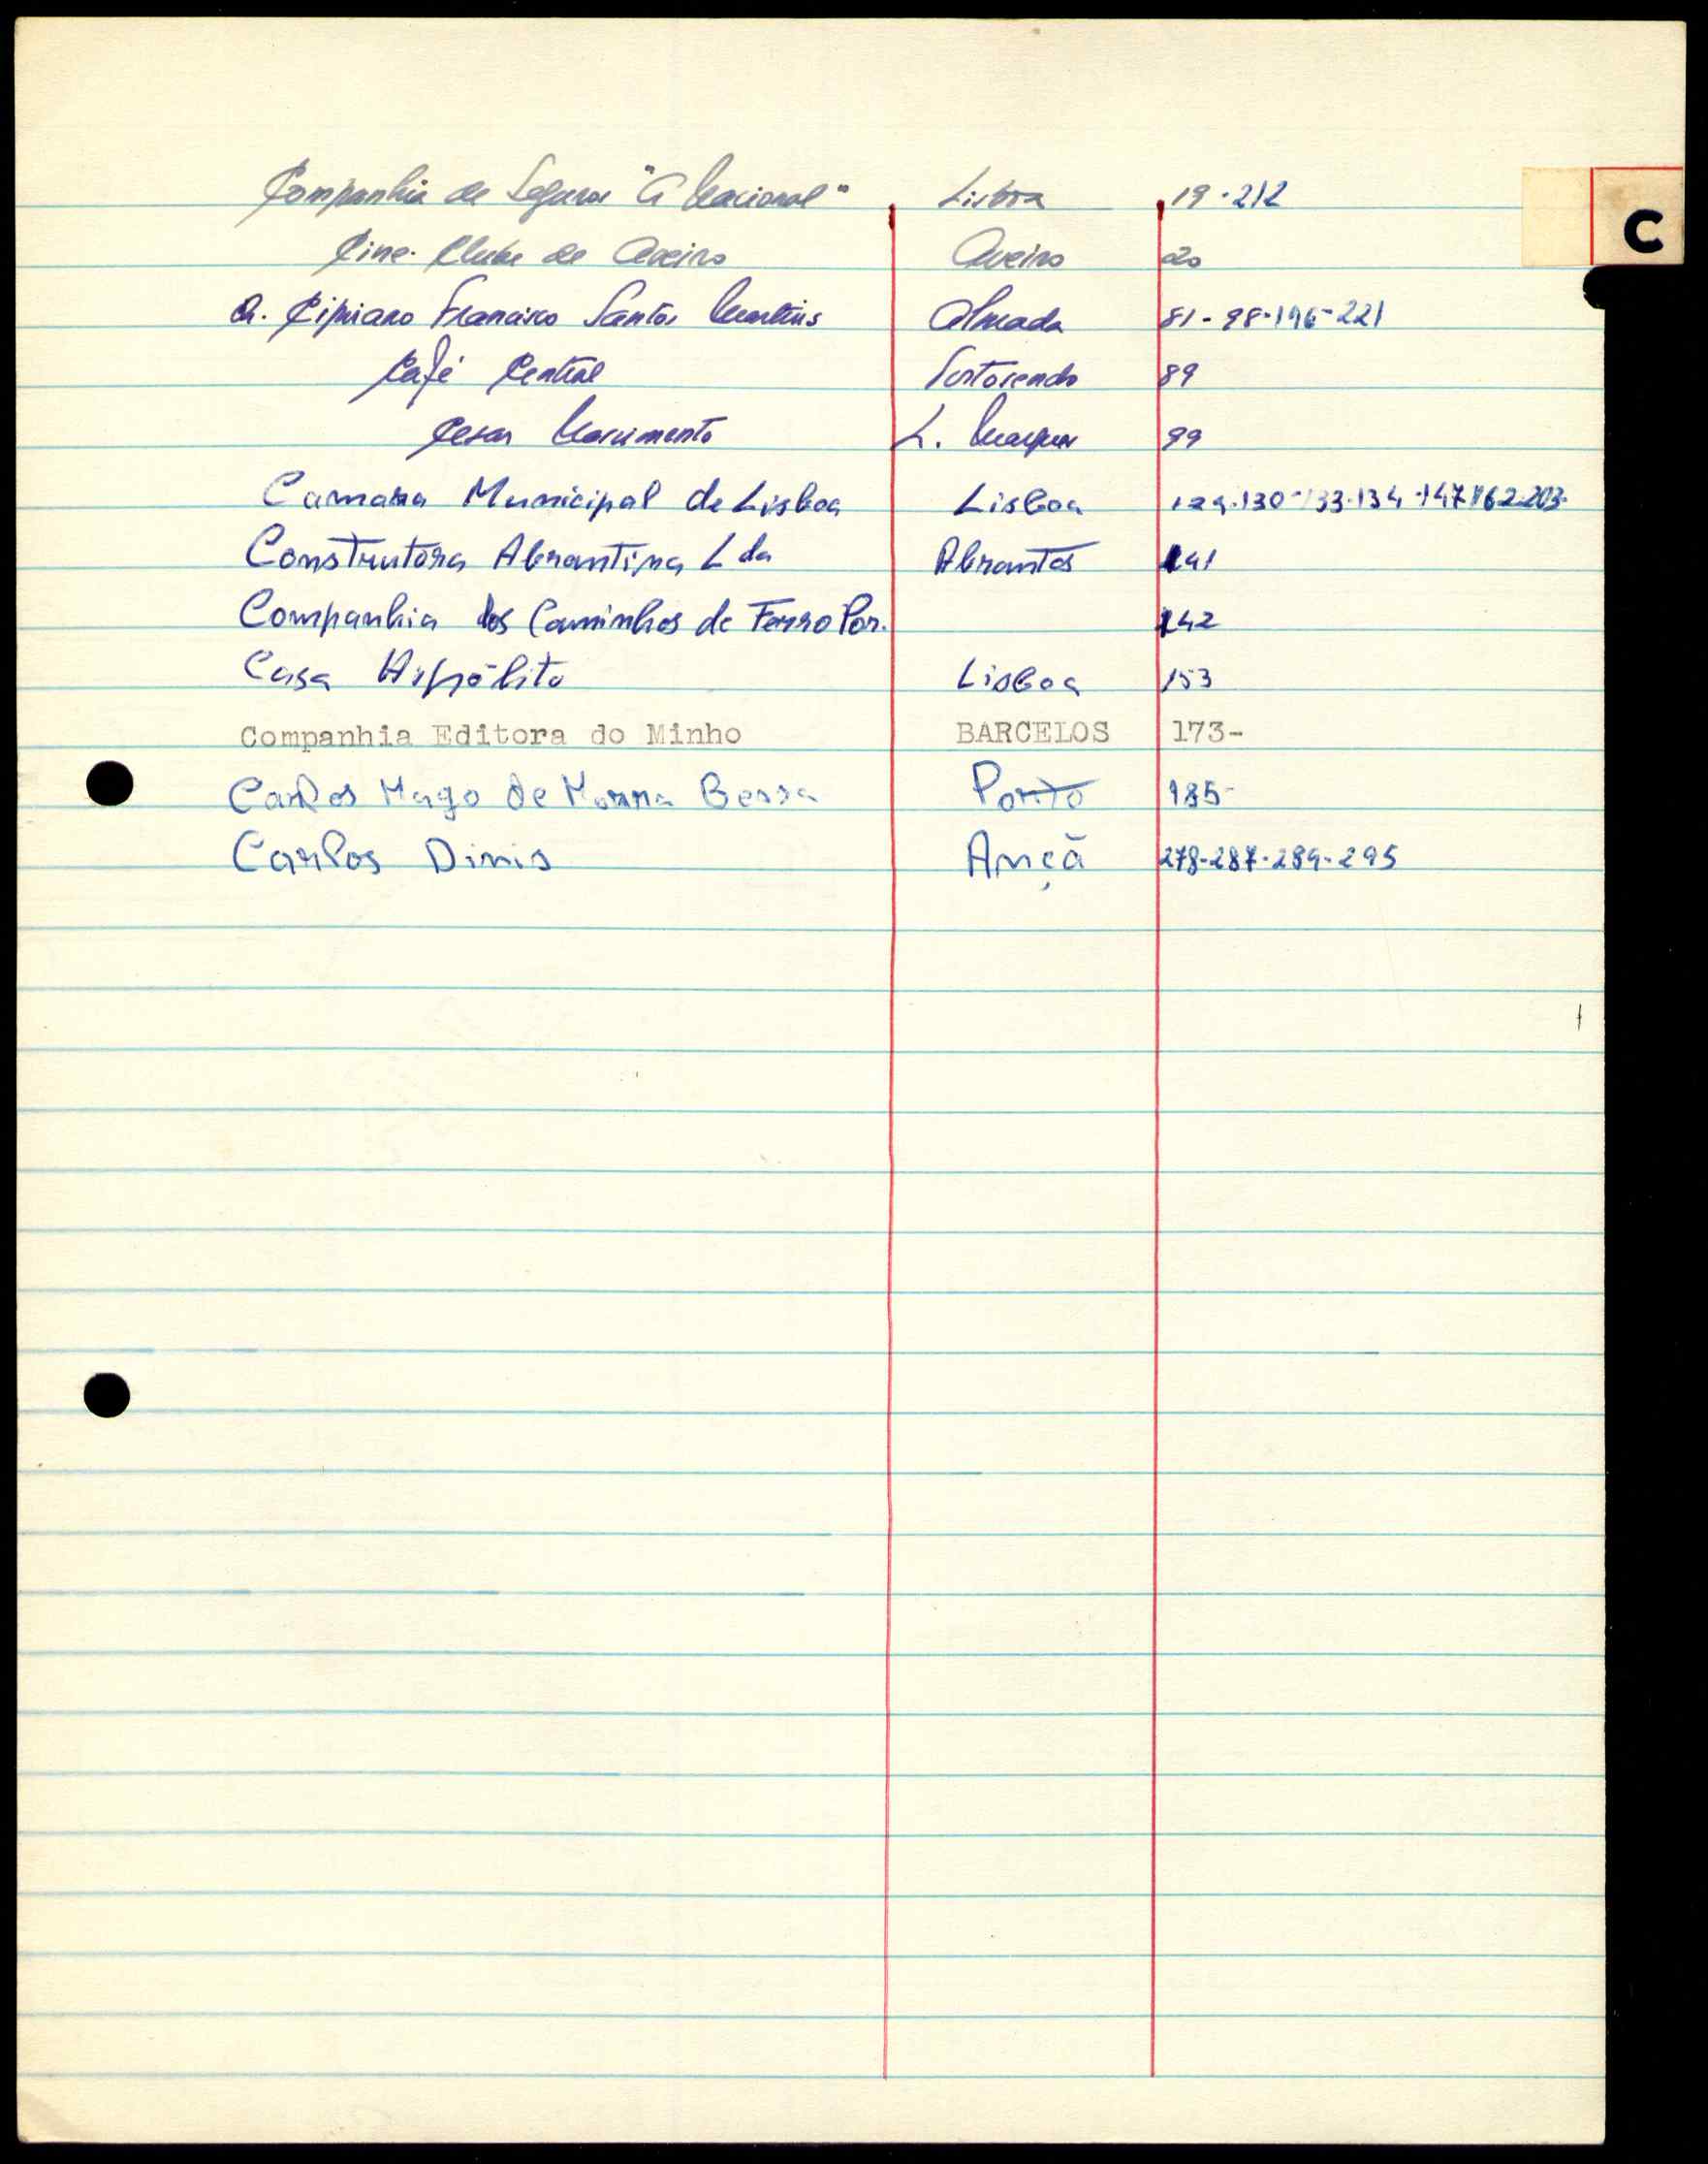 C
Companhia de Seguros "A Nacional" Lisboa 19-212
Cine-Clube de Aveiro Aveiro 20
Cipriano Francisco Santos Martins Almada 81-98-196-221
Café Central Tortosendo 89
Cesar Nascimento L. Marques 99
Camara Municipal de Lisboa Lisboa 129-130-133-134-147-162-203-
Construtora Abrantina Lda Abrantes 141
Companhia dos Caminhos de Ferro Por. 142
Casa Hipólito Lisboa 153
Companhia Editora do Minho BARCELOS 173-
Carlos Mago de Bessa Porto 185-
Carlos Dinis Ançã 278-287-289-295